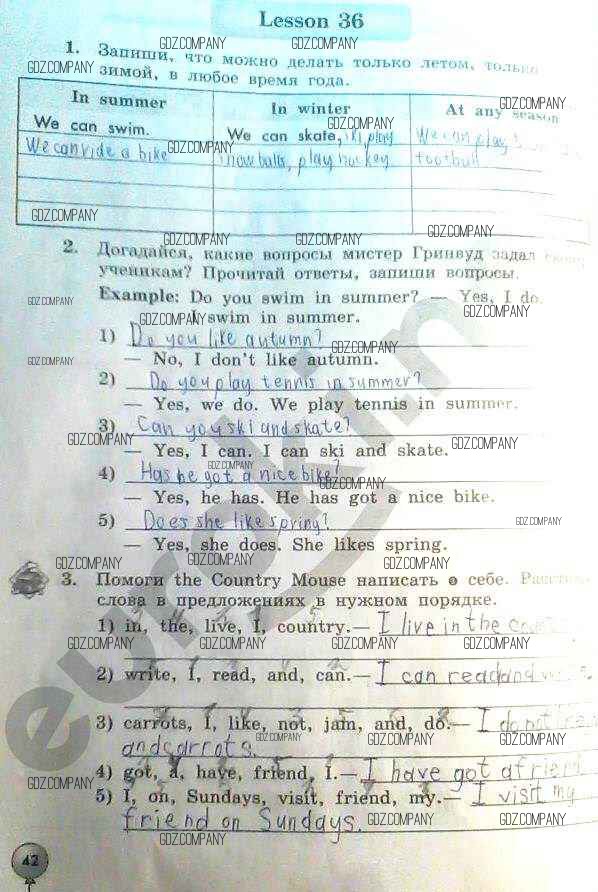 Lesson 36
1. Запиши, что можно делать только летом, только
зимой, в любое время года.
In summer
In winter
At any season
We can swim.
We can skate, ski, play
We can play
We can ride a bike
snowballs, play hockey
football
2. Догадайся, какие вопросы мистер Гринвуд задал
ученикам? Прочитай ответы, запиши вопросы.
Example: Do you swim in summer? — Yes, I do.
I swim in summer.
1) Do you like autumn?
— No, I don't like autumn.
2) Do you play tennis in summer?
— Yes, we do. We play tennis in summer.
3) Can you ski and skate?
— Yes, I can. I can ski and skate.
4) Has he got a nice bike?
— Yes, he has. He has got a nice bike.
5) Does she like spring?
— Yes, she does. She likes spring.
3. Помоги the Country Mouse написать о себе.
слова в предложениях в нужном порядке.
1) in, the, live, I, country. — I live in the
2) write, I, read, and, can. — I can read and
3) carrots, I, like, not, jam, and, do. — I do not
and carrots.
4) got, a, have, friend, I. — I have got a friend
5) I, on, Sundays, visit, friend, my. — I visit my
friend on Sundays.
42
GDZ.COMPANY
euroki